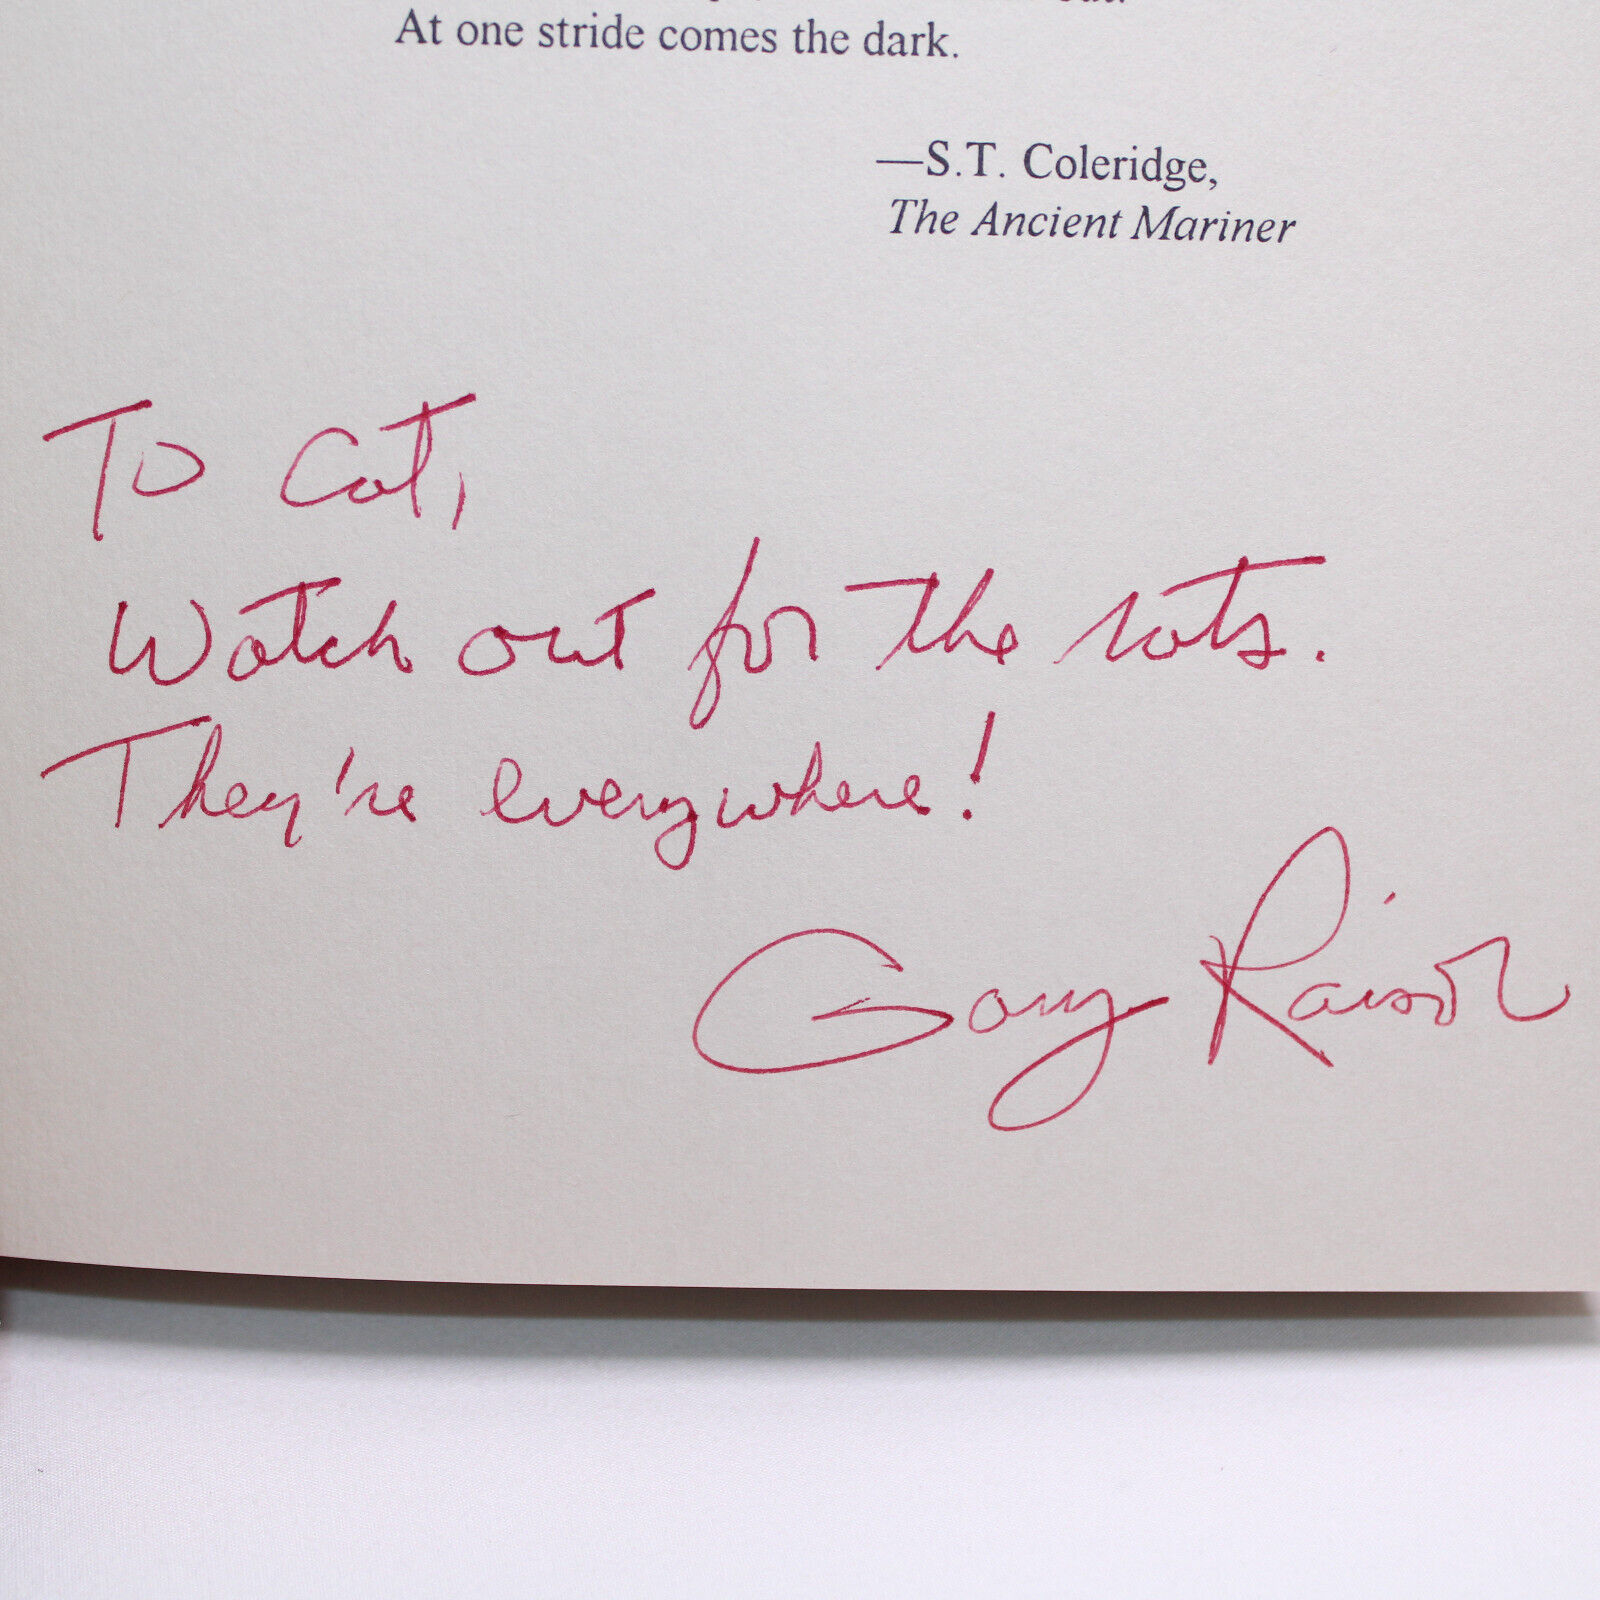 At one stride comes the dark.
—S.T. Coleridge,
The Ancient Mariner
To Cat,
Watch out for the rats.
They're everywhere!
Gary Raisor